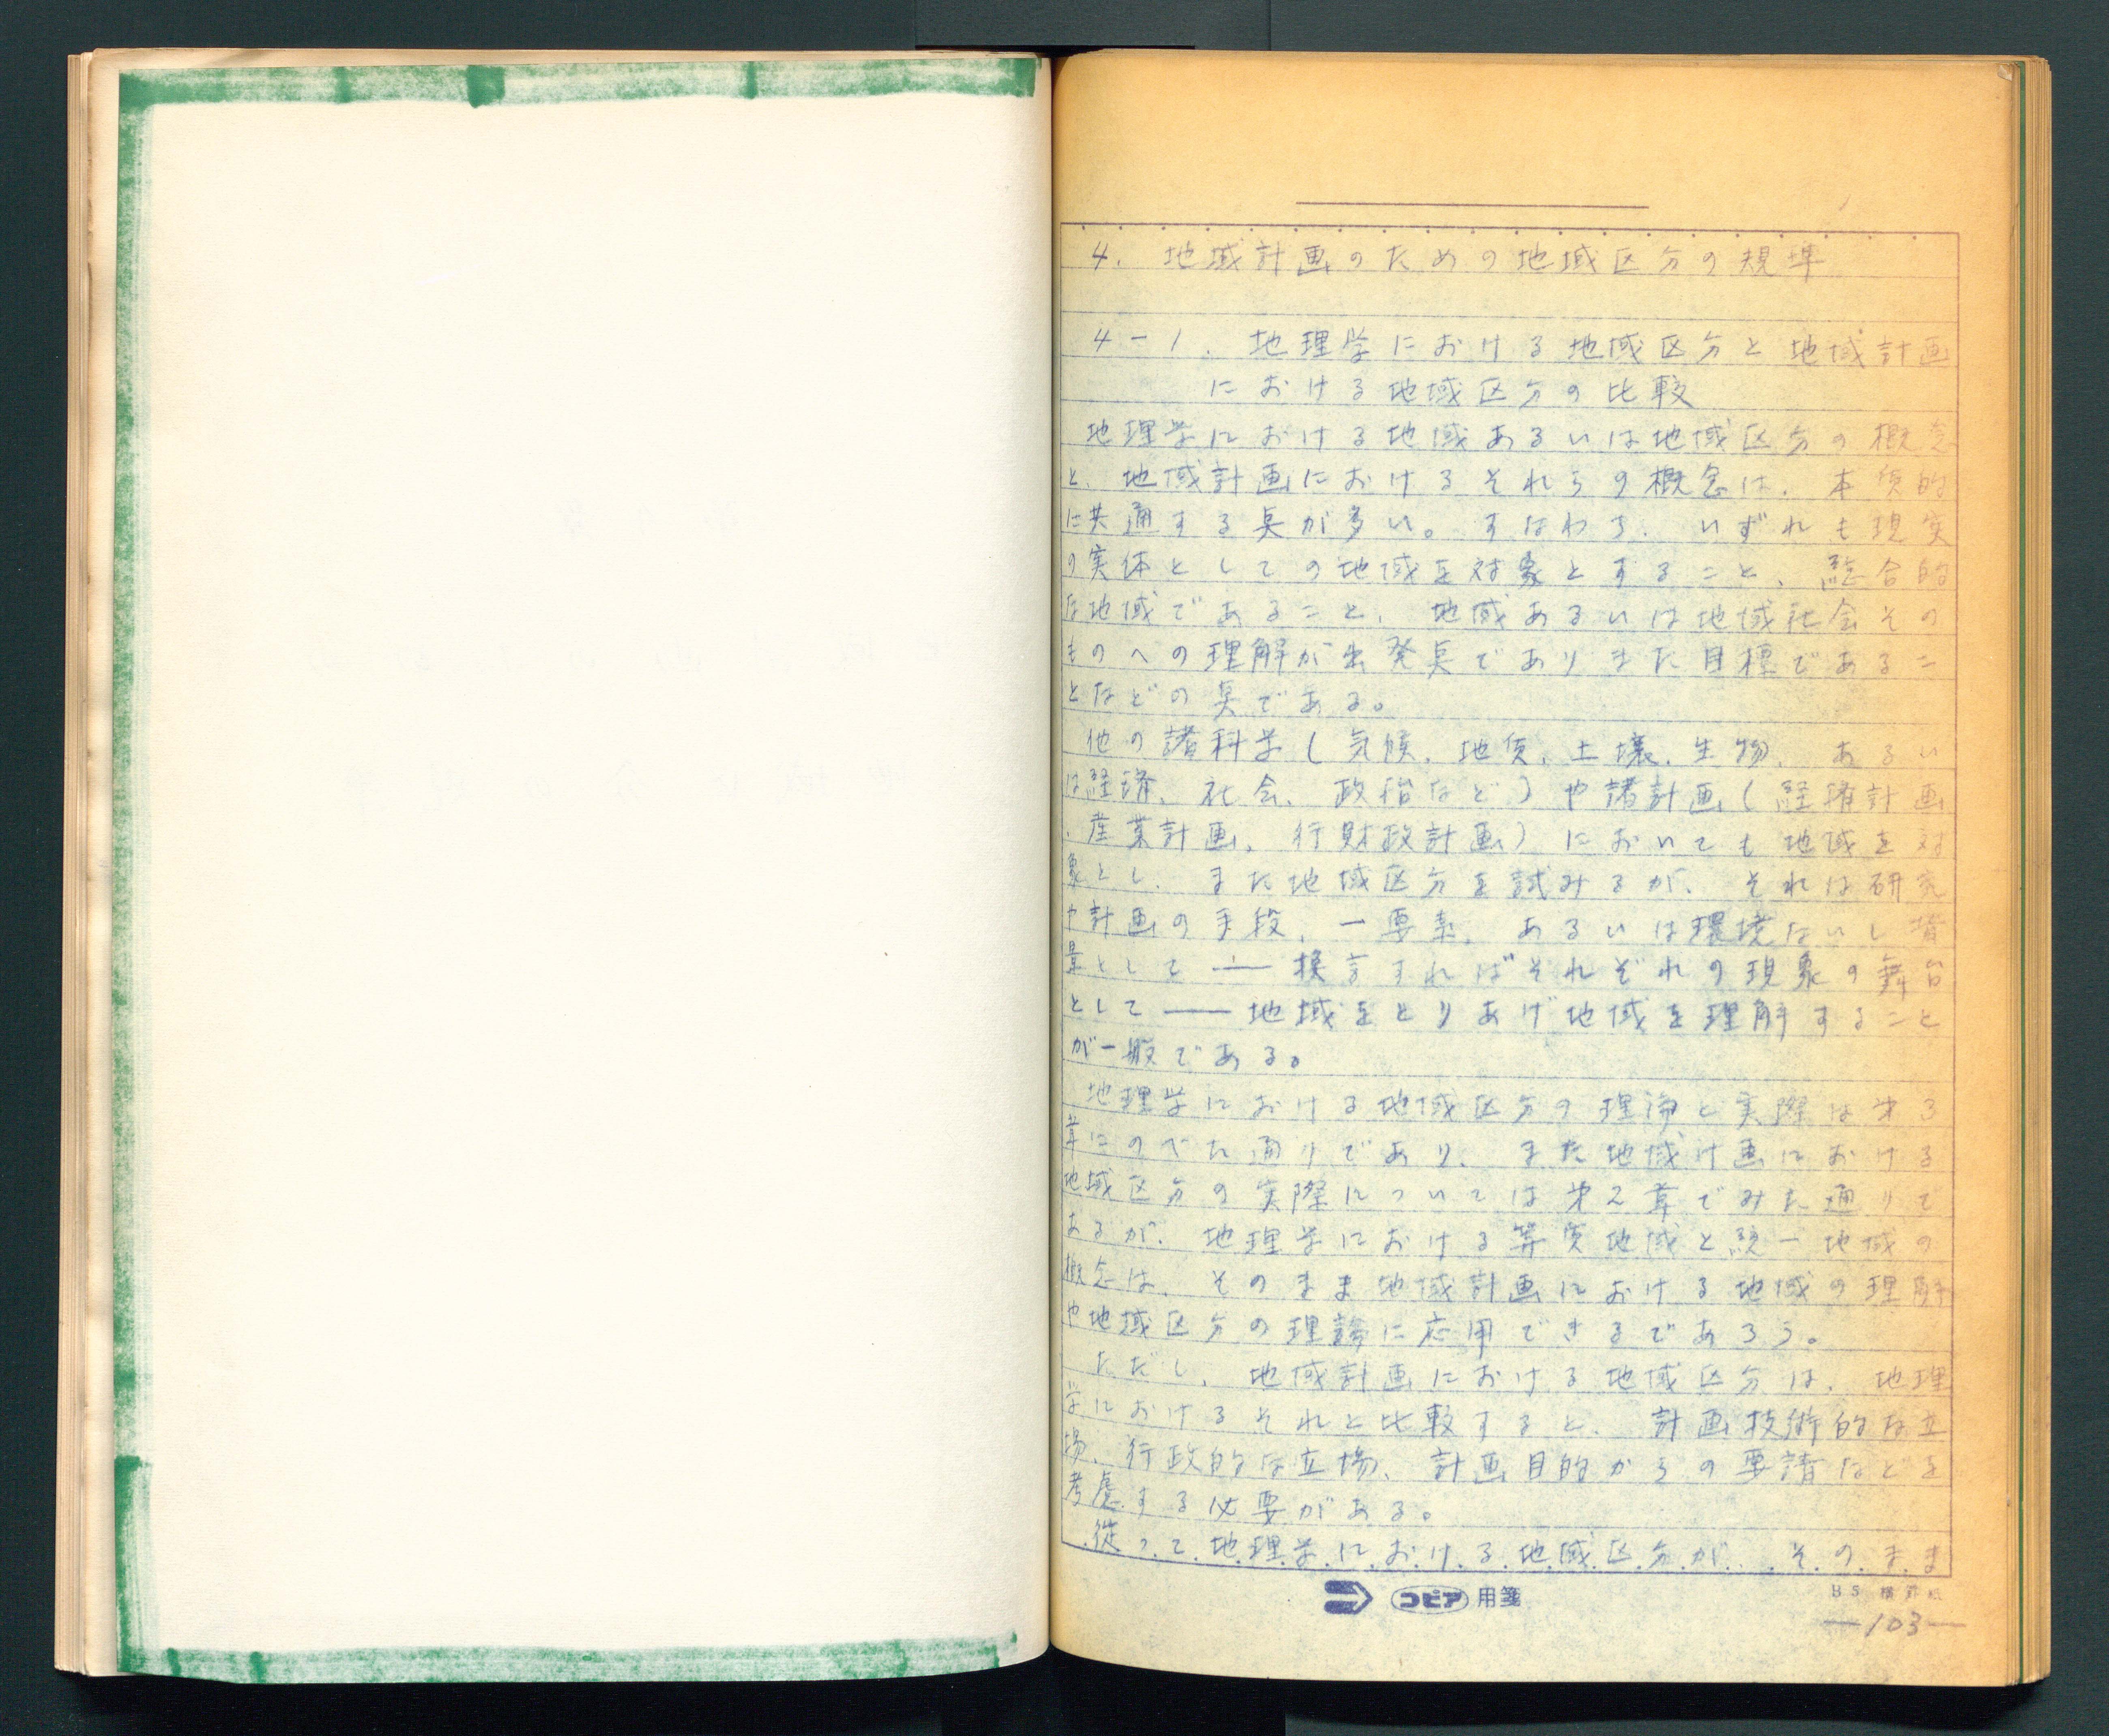 4. 地域計画のための地域区分の規準
4-1. 地理学における地域区分と地域計画
における地域区分の比較
地理学における地域あるいは地域区分の概念
と、地域計画におけるそれらの概念は、本質的
に共通する点が多い。すなわち、いずれも現実
の実体としての地域を対象とすること、総合的
な地域であること、地域あるいは地域社会その
ものへの理解が出発点でありまた目標であるこ
となどの点である。
他の諸科学(気候、地質、土壌、生物、あるい
は経済、社会、政治など)や諸計画(経済計画
、産業計画、行財政計画)においても地域を対
象とし、また地域区分を試みるが、それは研究
や計画の手段、一要素、あるいは環境ないし背
景として――換言すればそれぞれの現象の舞台
として――地域をとりあげ地域を理解すること
が一般である。
地理学における地域区分の理論と実際は才3
章にのべた通りであり、また地域計画における
地域区分の実際については才2章でみた通りで
あるが、地理学における等質地域と統一地域の
概念は、そのまま地域計画における地域の理解
や地域区分の理論に応用できるであろう。
ただし、地域計画における地域区分は、地理
学におけるそれと比較すると、計画技術的な立
場、行政的な立場、計画目的からの要請などを
考慮する必要がある。
従って地理学における地域区分が、そのまま
コピア用箋
B5 横罫紙
—103—